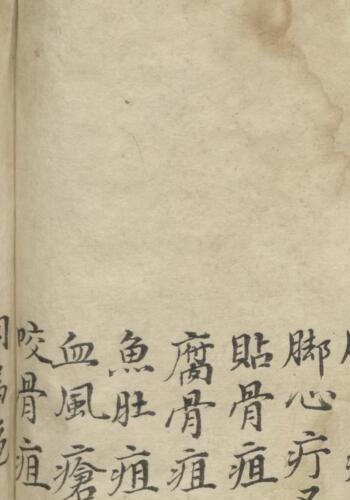 脚心疔
貼骨疽
腐骨疽
魚肚疽
血風瘡
咬骨疽